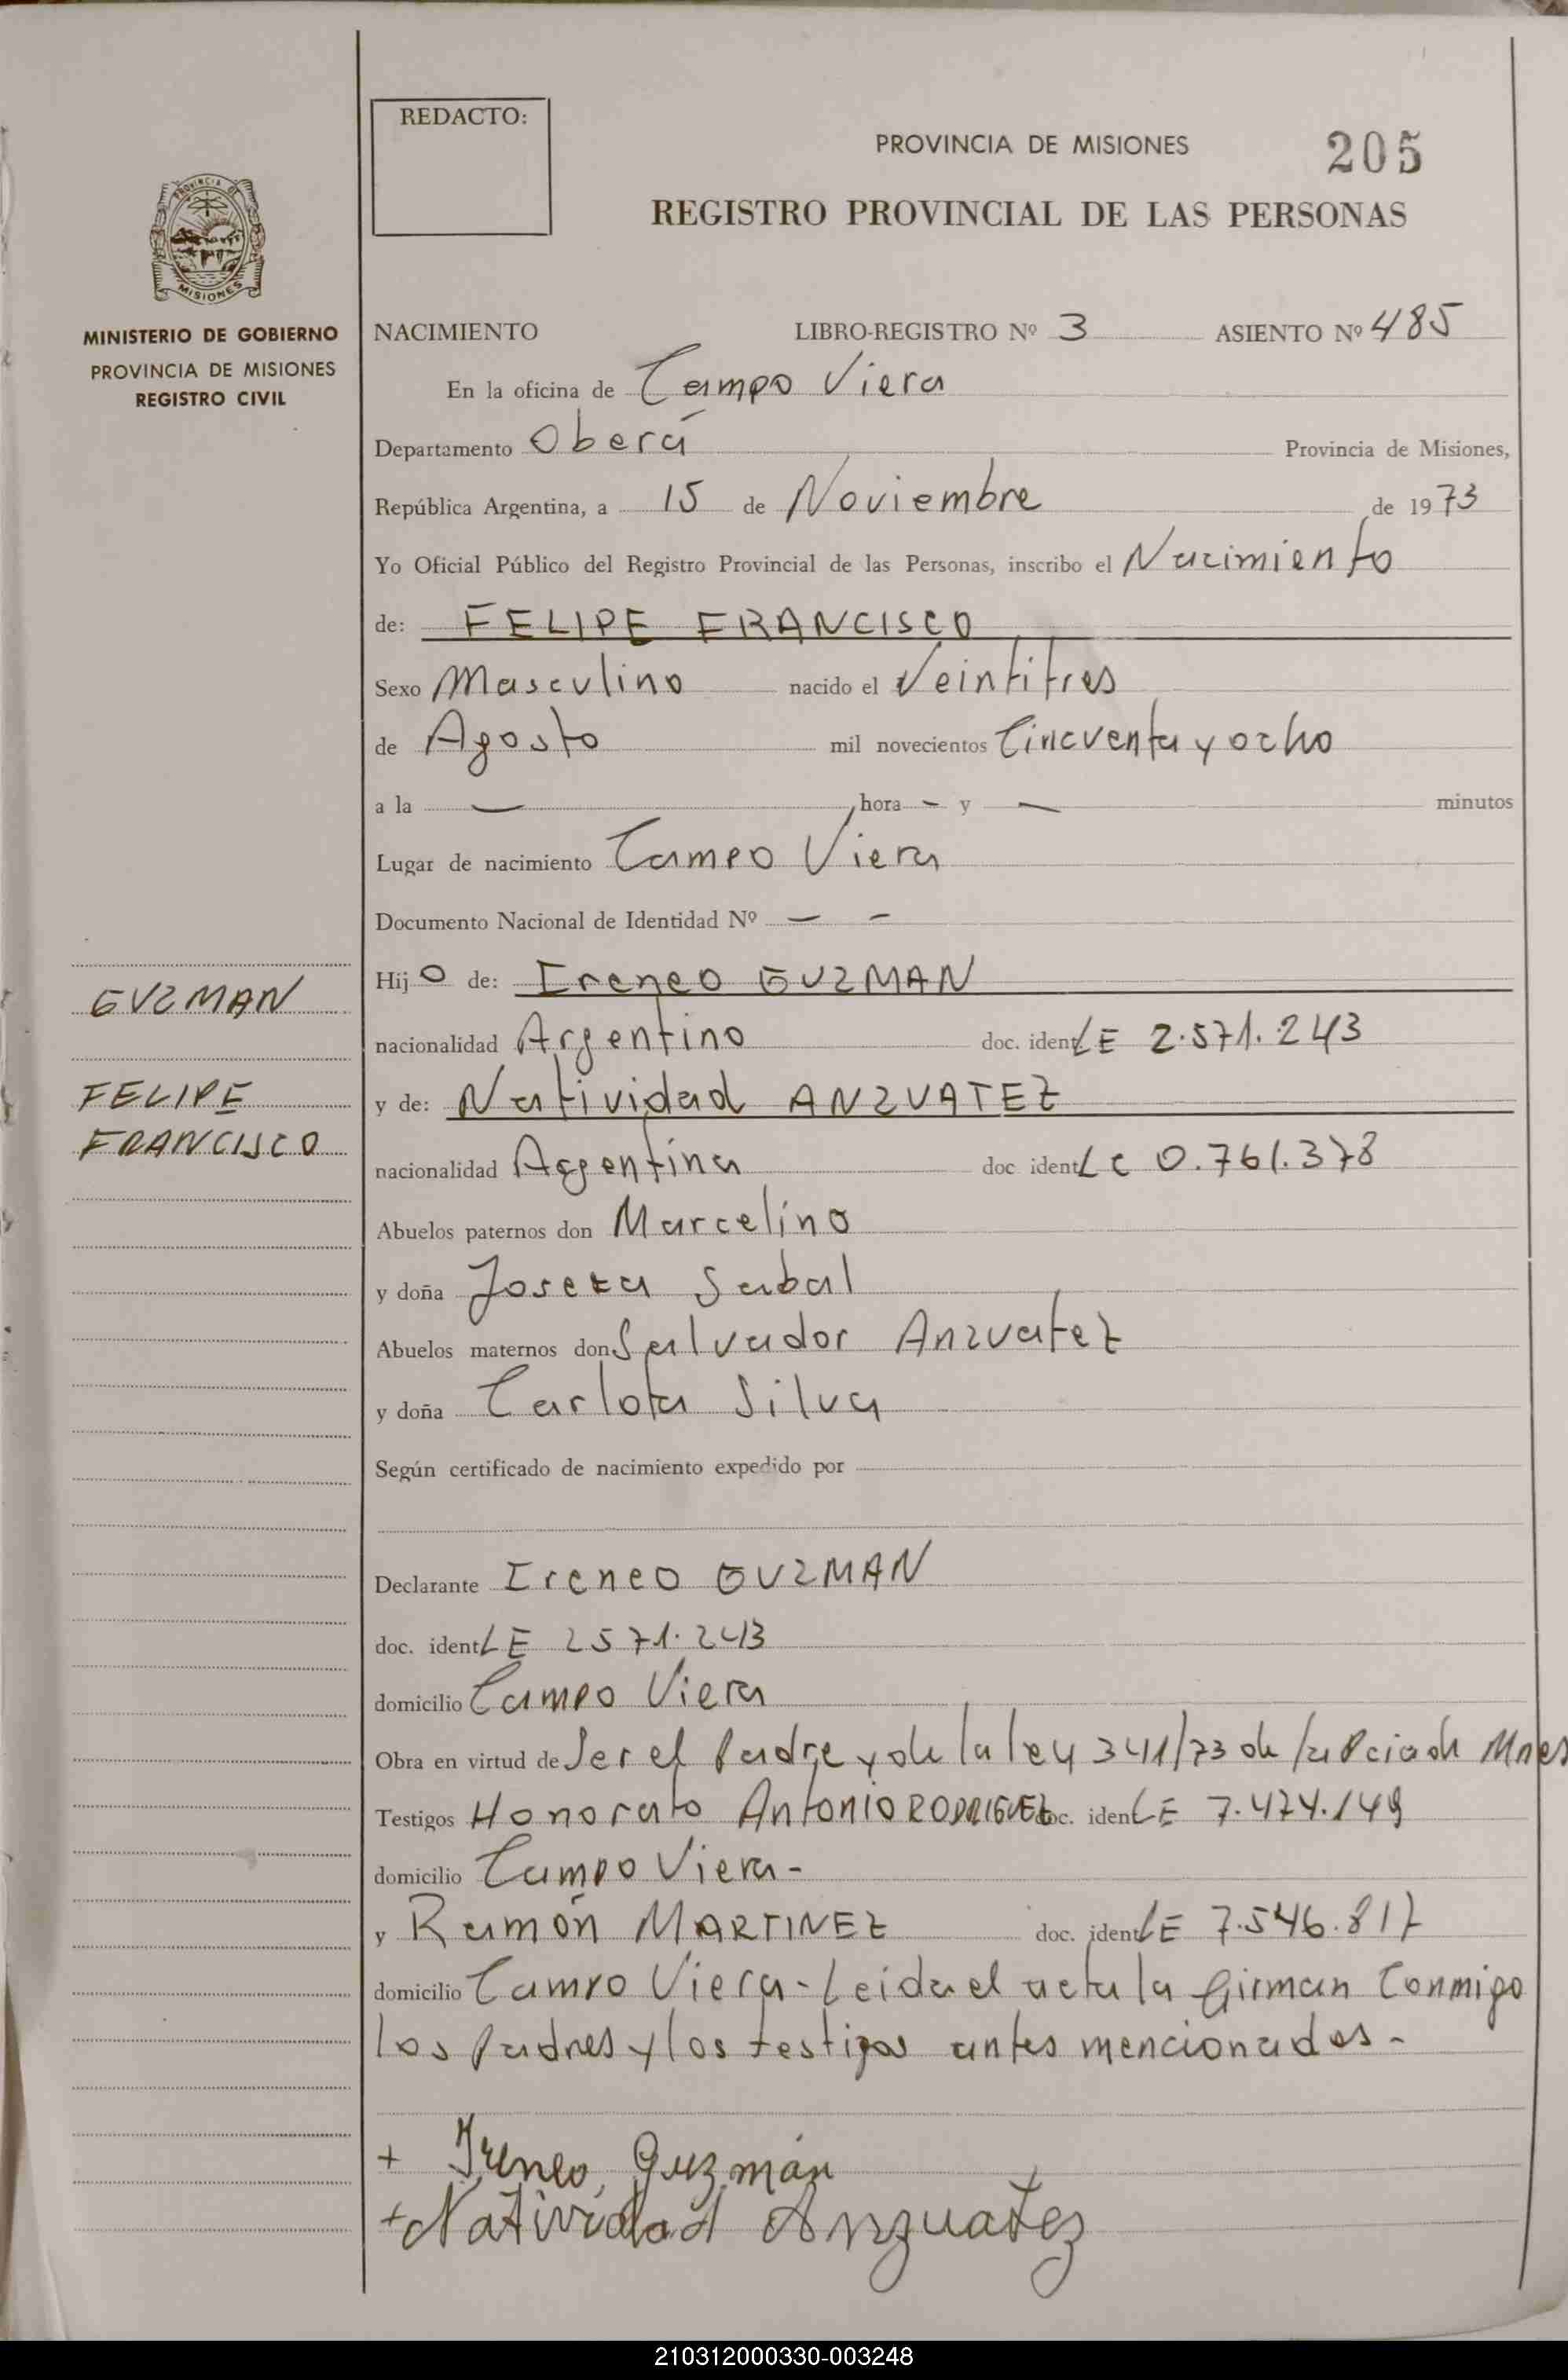 REDACTO:
PROVINCIA DE MISIONES
205
REGISTRO PROVINCIAL DE LAS PERSONAS
PROVINCIA DE
MISIONES
MINISTERIO DE GOBIERNO
PROVINCIA DE MISIONES
REGISTRO CIVIL
NACIMIENTO LIBRO-REGISTRO Nº 3 ASIENTO Nº 485
En la oficina de Campo Viera
Departamento Oberá Provincia de Misiones,
República Argentina, a 15 de Noviembre de 1973
Yo Oficial Público del Registro Provincial de las Personas, inscribo el Nacimiento
de: FELIPE FRANCISCO
Sexo Masculino nacido el Veintitres
de Agosto mil novecientos Cincuenta y ocho
a la — hora - y — minutos
Lugar de nacimiento Campo Viera
Documento Nacional de Identidad Nº — -
Hijo de: Ireneo GUZMAN
nacionalidad Argentino doc. ident LE 2.571.243
y de: Natividad ANZUATEZ
nacionalidad Argentina doc ident LC 0.761.378
Abuelos paternos don Marcelino
y doña Josefa Sabal
Abuelos maternos don Salvador Anzuatez
y doña Carlota Silva
Según certificado de nacimiento expedido por
Declarante Ireneo GUZMAN
doc. ident LE 2571.243
domicilio Campo Viera
Obra en virtud de Ser el Padre y de la ley 341/73 de la Pcia de Mnes
Testigos Honorato Antonio RODRIGUEZ doc. ident LE 7.474.149
domicilio Campo Viera-
y Ramón MARTINEZ doc. ident LE 7.546.817
domicilio Campo Viera - Leida el acta la firman Conmigo
los Padres y los testigos antes mencionados -
+ Ireneo, Guzmán
+ Natividad Anzuatez
GUZMAN
FELIPE
FRANCISCO
210312000330-003248